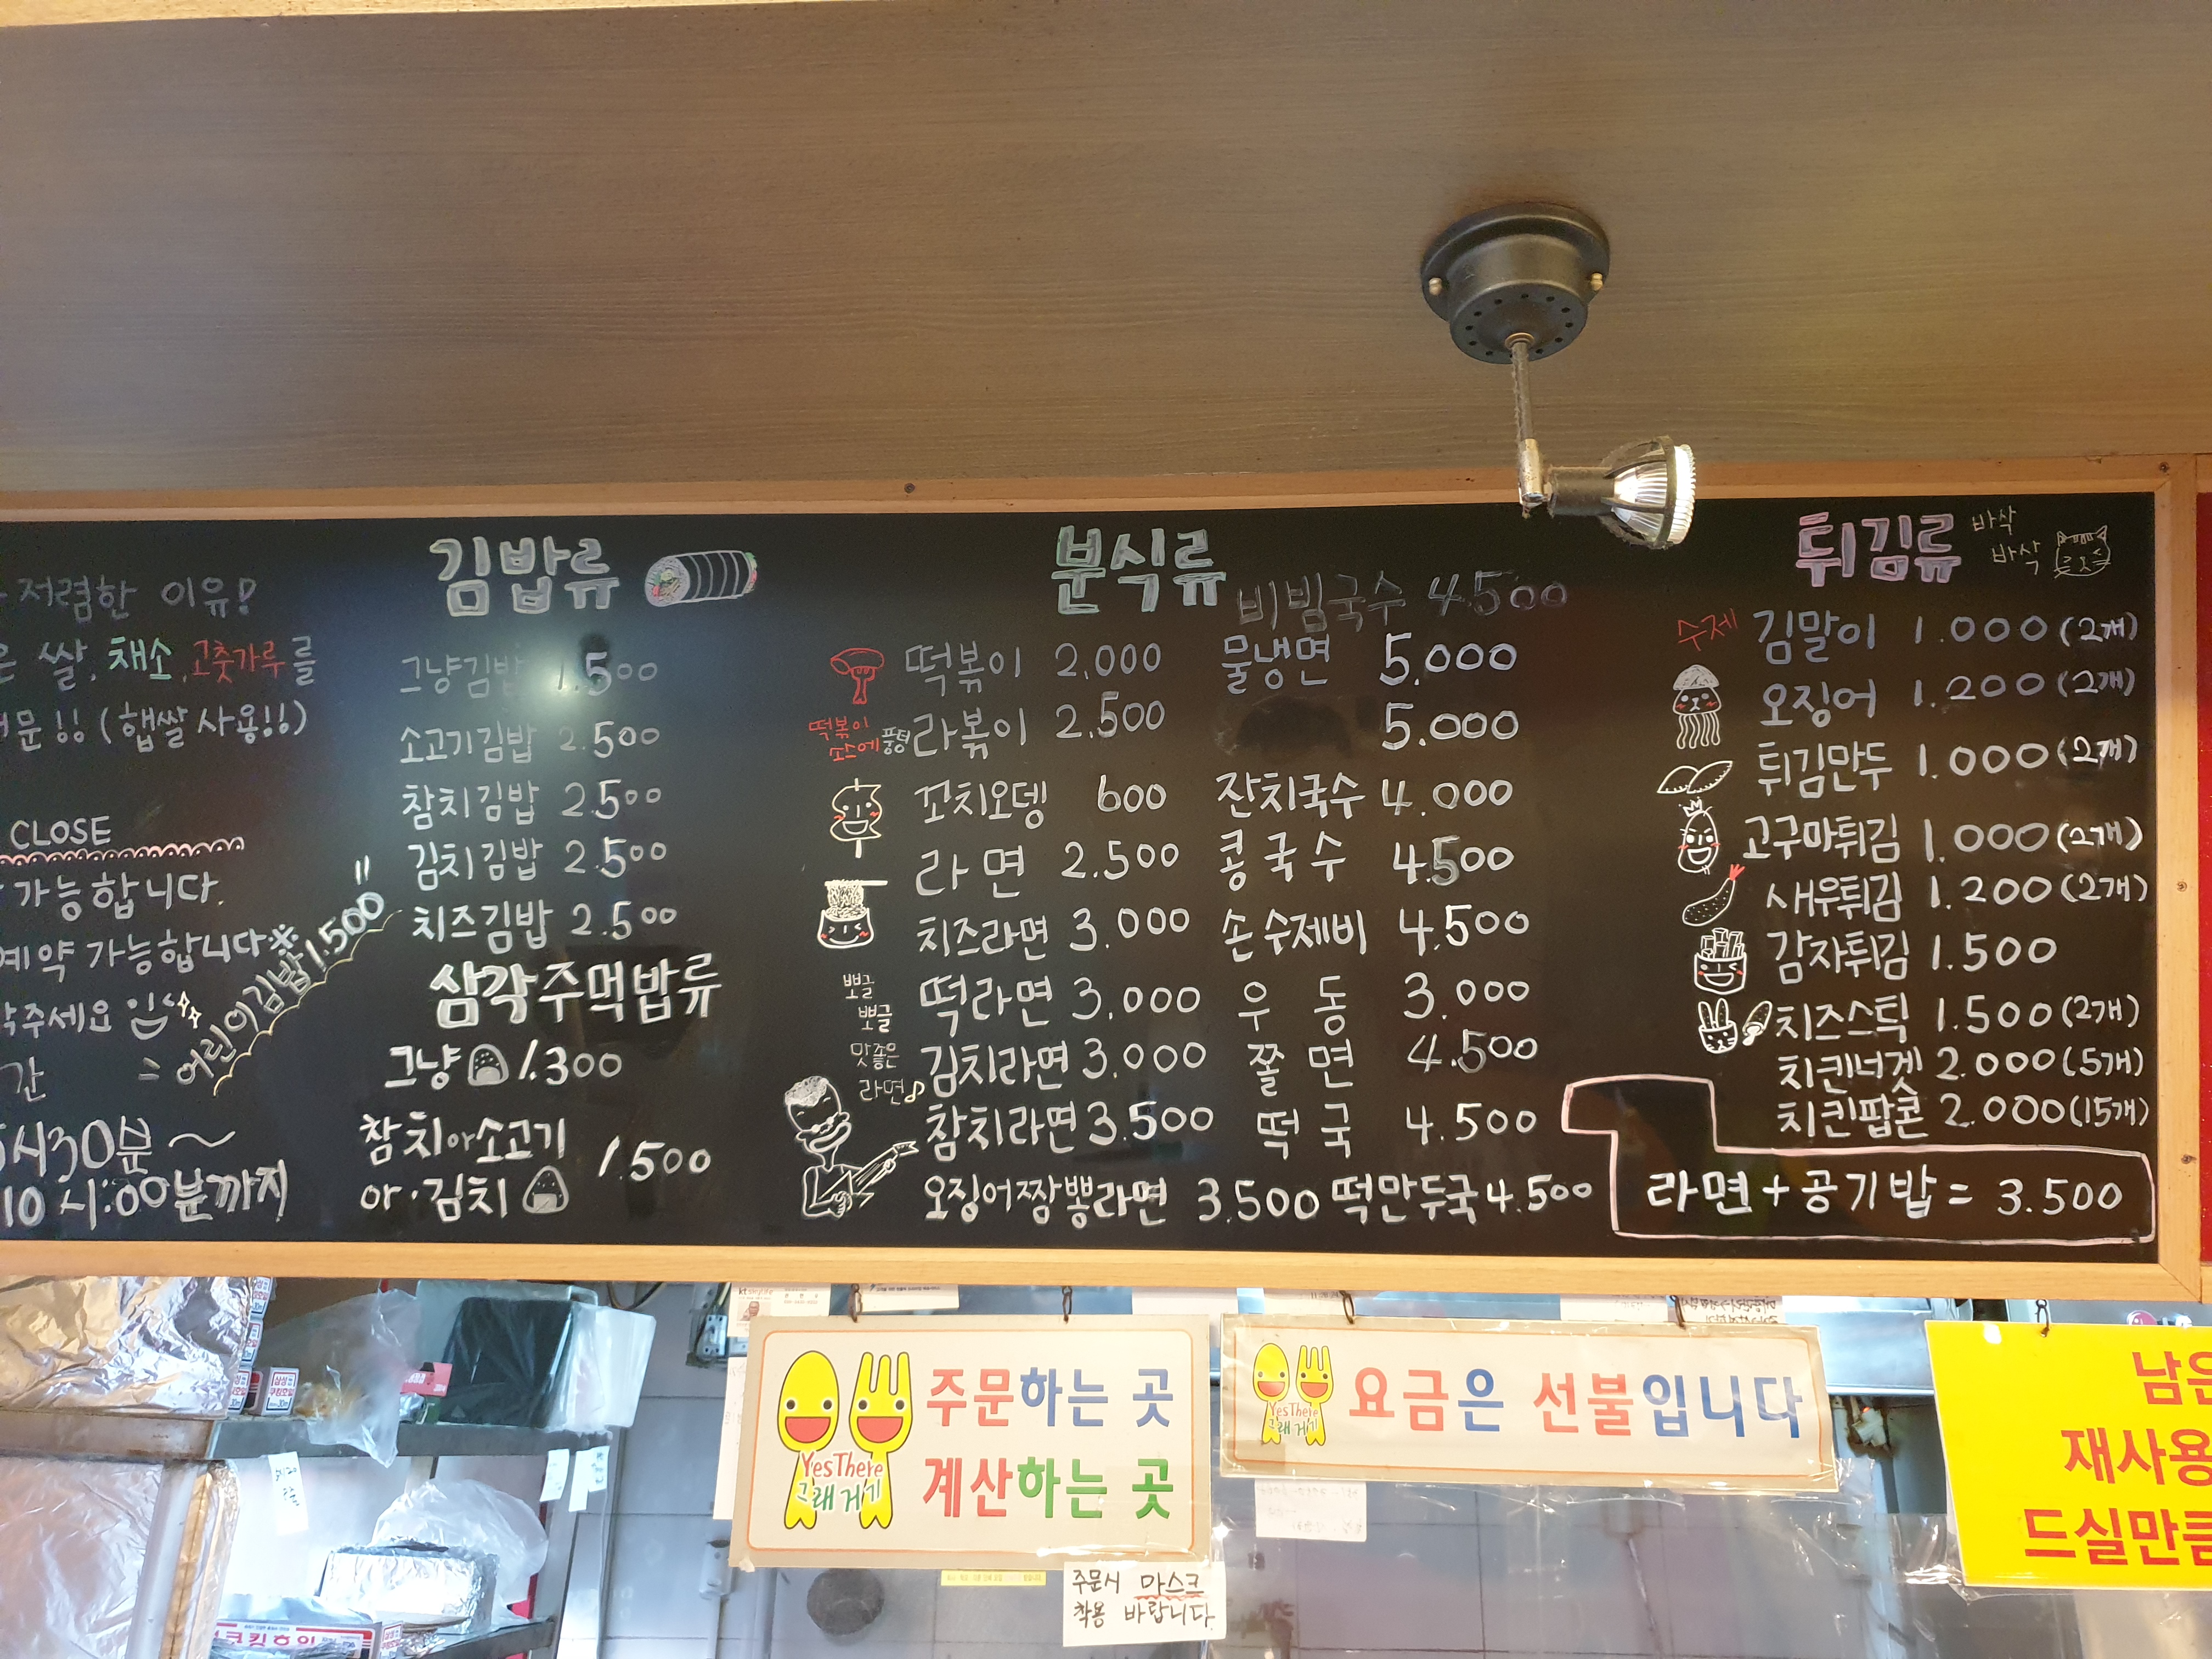 저렴한 이유!
은 쌀, 채소, 고춧가루를
문!! (햅쌀 사용!!)
CLOSE
가능합니다.
예약 가능합니다※
주세요
간
5시30분 ~
10시:00분까지
어린이김밥 1.500
김밥류
그냥김밥 1.500
소고기김밥 2.500
참치김밥 2.500
김치김밥 2.500
치즈김밥 2.500
삼각주먹밥류
그냥 1.300
참치아소고기
아·김치 1.500
분식류
떡볶이 2.000
떡볶이
소스에 퐁당
라볶이 2.500
꼬치오뎅 600
라면 2.500
치즈라면 3.000
뽀글
뽀글
맛좋은
라면♪
떡라면 3.000
김치라면 3.000
참치라면 3.500
오징어짬뽕라면 3.500
비빔국수 4.500
물냉면 5.000
5.000
잔치국수 4.000
콩국수 4.500
손수제비 4.500
우동 3.000
쫄면 4.500
떡국 4.500
떡만두국 4.500
튀김류
바삭
바삭
수제 김말이 1.000 (2개)
오징어 1.200 (2개)
튀김만두 1.000 (2개)
고구마튀김 1.000 (2개)
새우튀김 1.200 (2개)
감자튀김 1.500
치즈스틱 1.500 (2개)
치킨너겟 2.000 (5개)
치킨팝콘 2.000 (15개)
라면 + 공기밥 = 3.500
주문하는 곳
계산하는 곳
Yes There
그래 거기
요금은 선불입니다
Yes There
그래 거기
주문시 마스크
착용 바랍니다.
남은
재사용
드실만큼
kt skylife
삼성
쿠킹호일
쿠킹호일